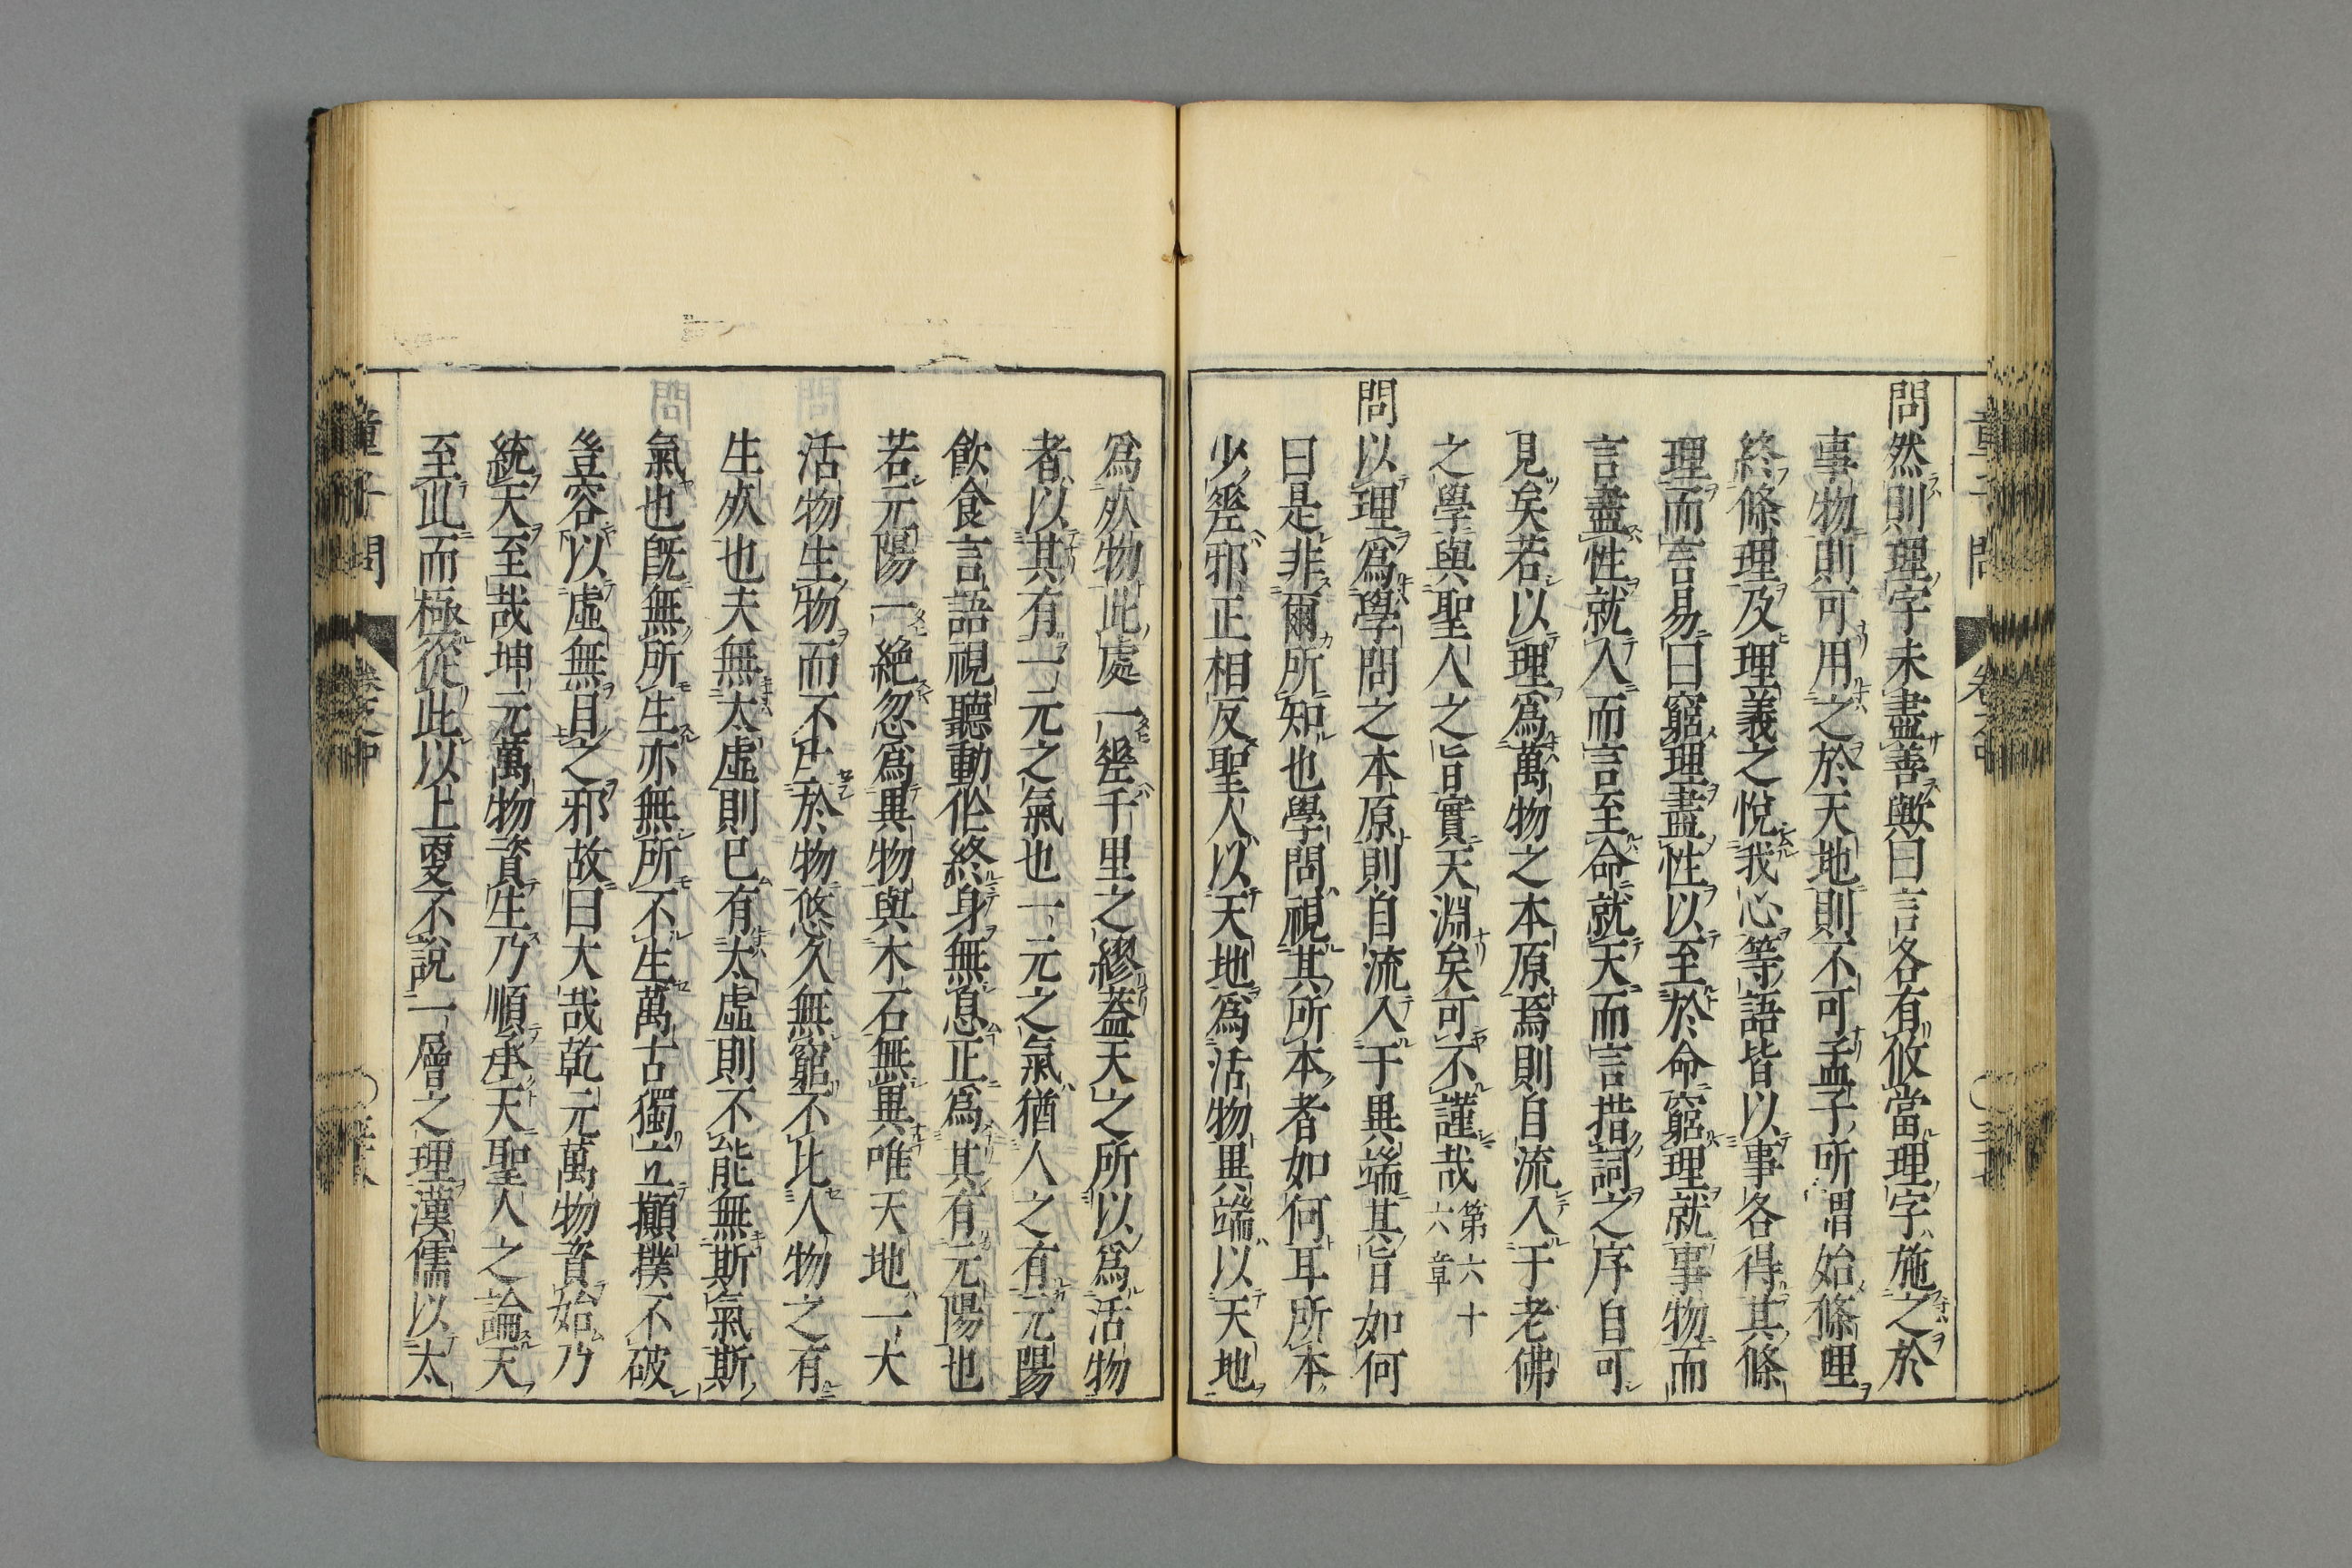 問然則理字未盡善歟曰言各有攸當理字施之於
事物則可用之於天地則不可孟子所謂始條理
終條理及理義之悅我心等語皆以事各得其條
理而言易曰窮理盡性以至於命窮理就事物而
言盡性就人而言至命就天而言措詞之序自可
見矣若以理爲萬物之本原焉則自流入于老佛
之學與聖人之旨實天淵矣可不謹哉
第六十
六章
問以理爲學問之本原則自流入于異端其旨如何
曰是非爾所知也學問視其所本者如何耳所本
少差邪正相反聖人以天地爲活物異端以天地
爲死物此處一差千里之繆蓋天之所以爲活物
者以其有一元之氣也一元之氣猶人之有元陽
飲食言語視聽動作終身無息正爲其有元陽也
若元陽一絕忽爲異物與木石無異唯天地一大
活物生物而不生於物悠久無窮不比人物之有
生死也夫無太虛則已有太虛則不能無斯氣斯
氣也既無所生亦無所不生萬古獨立顚撲不破
豈容以虛無目之邪故曰大哉乾元萬物資始乃
統天至哉坤元萬物資生乃順承天聖人之論天
至此而極從此以上更不說一層之理漢儒以太
童子問
卷之中